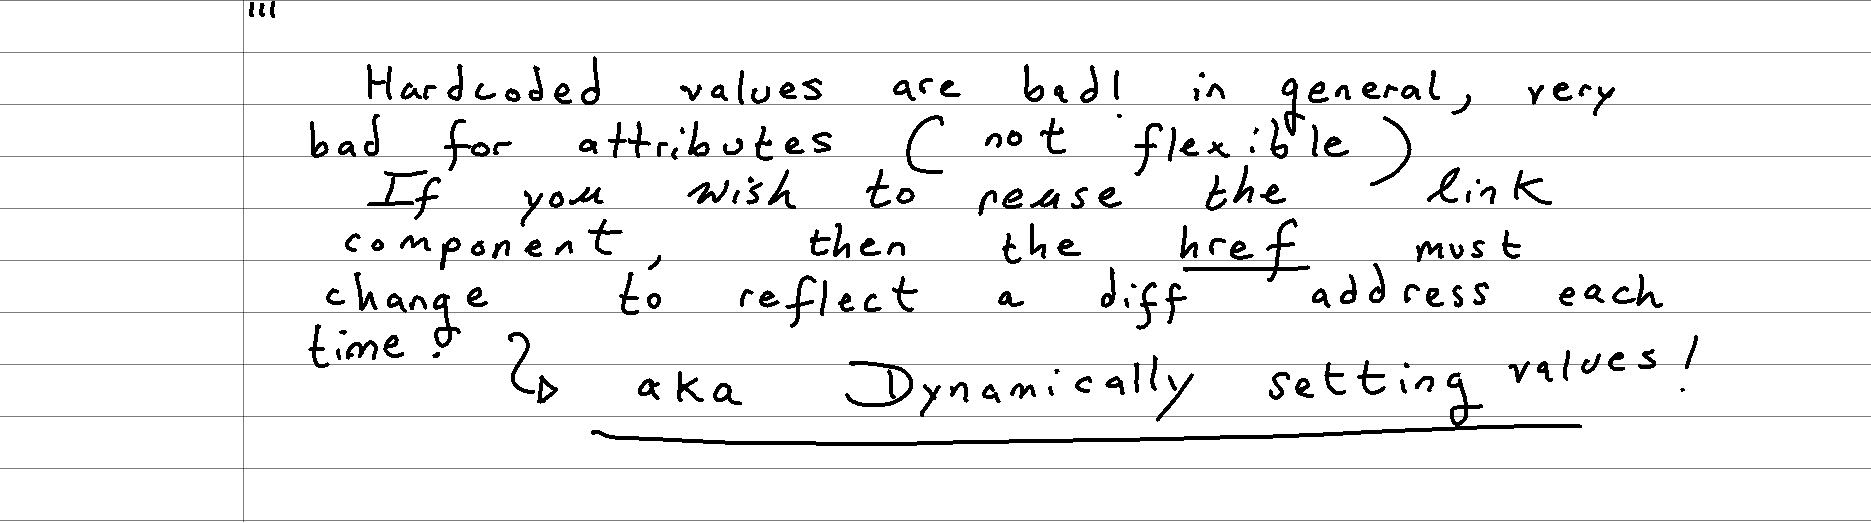 Hardcoded values are bad! in general, very
bad for attributes (not flexible)
If you wish to reuse the link
component, then the href must
change to reflect a diff address each
time.
aka Dynamically setting values!